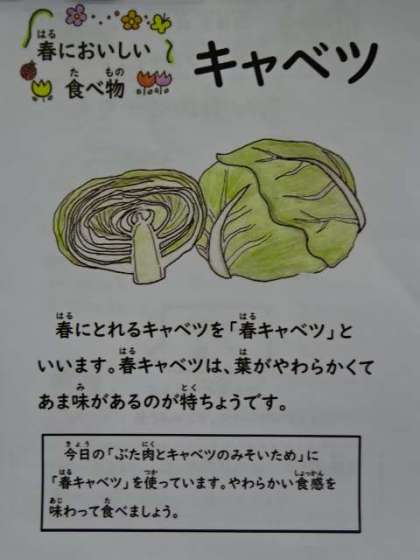 春においしい
食べ物
キャベツ
春にとれるキャベツを「春キャベツ」と
いいます。春キャベツは、葉がやわらかくて
あま味があるのが特ちょうです。
今日の「ぶた肉とキャベツのみそいため」に
「春キャベツ」を使っています。やわらかい食感を
味わって食べましょう。